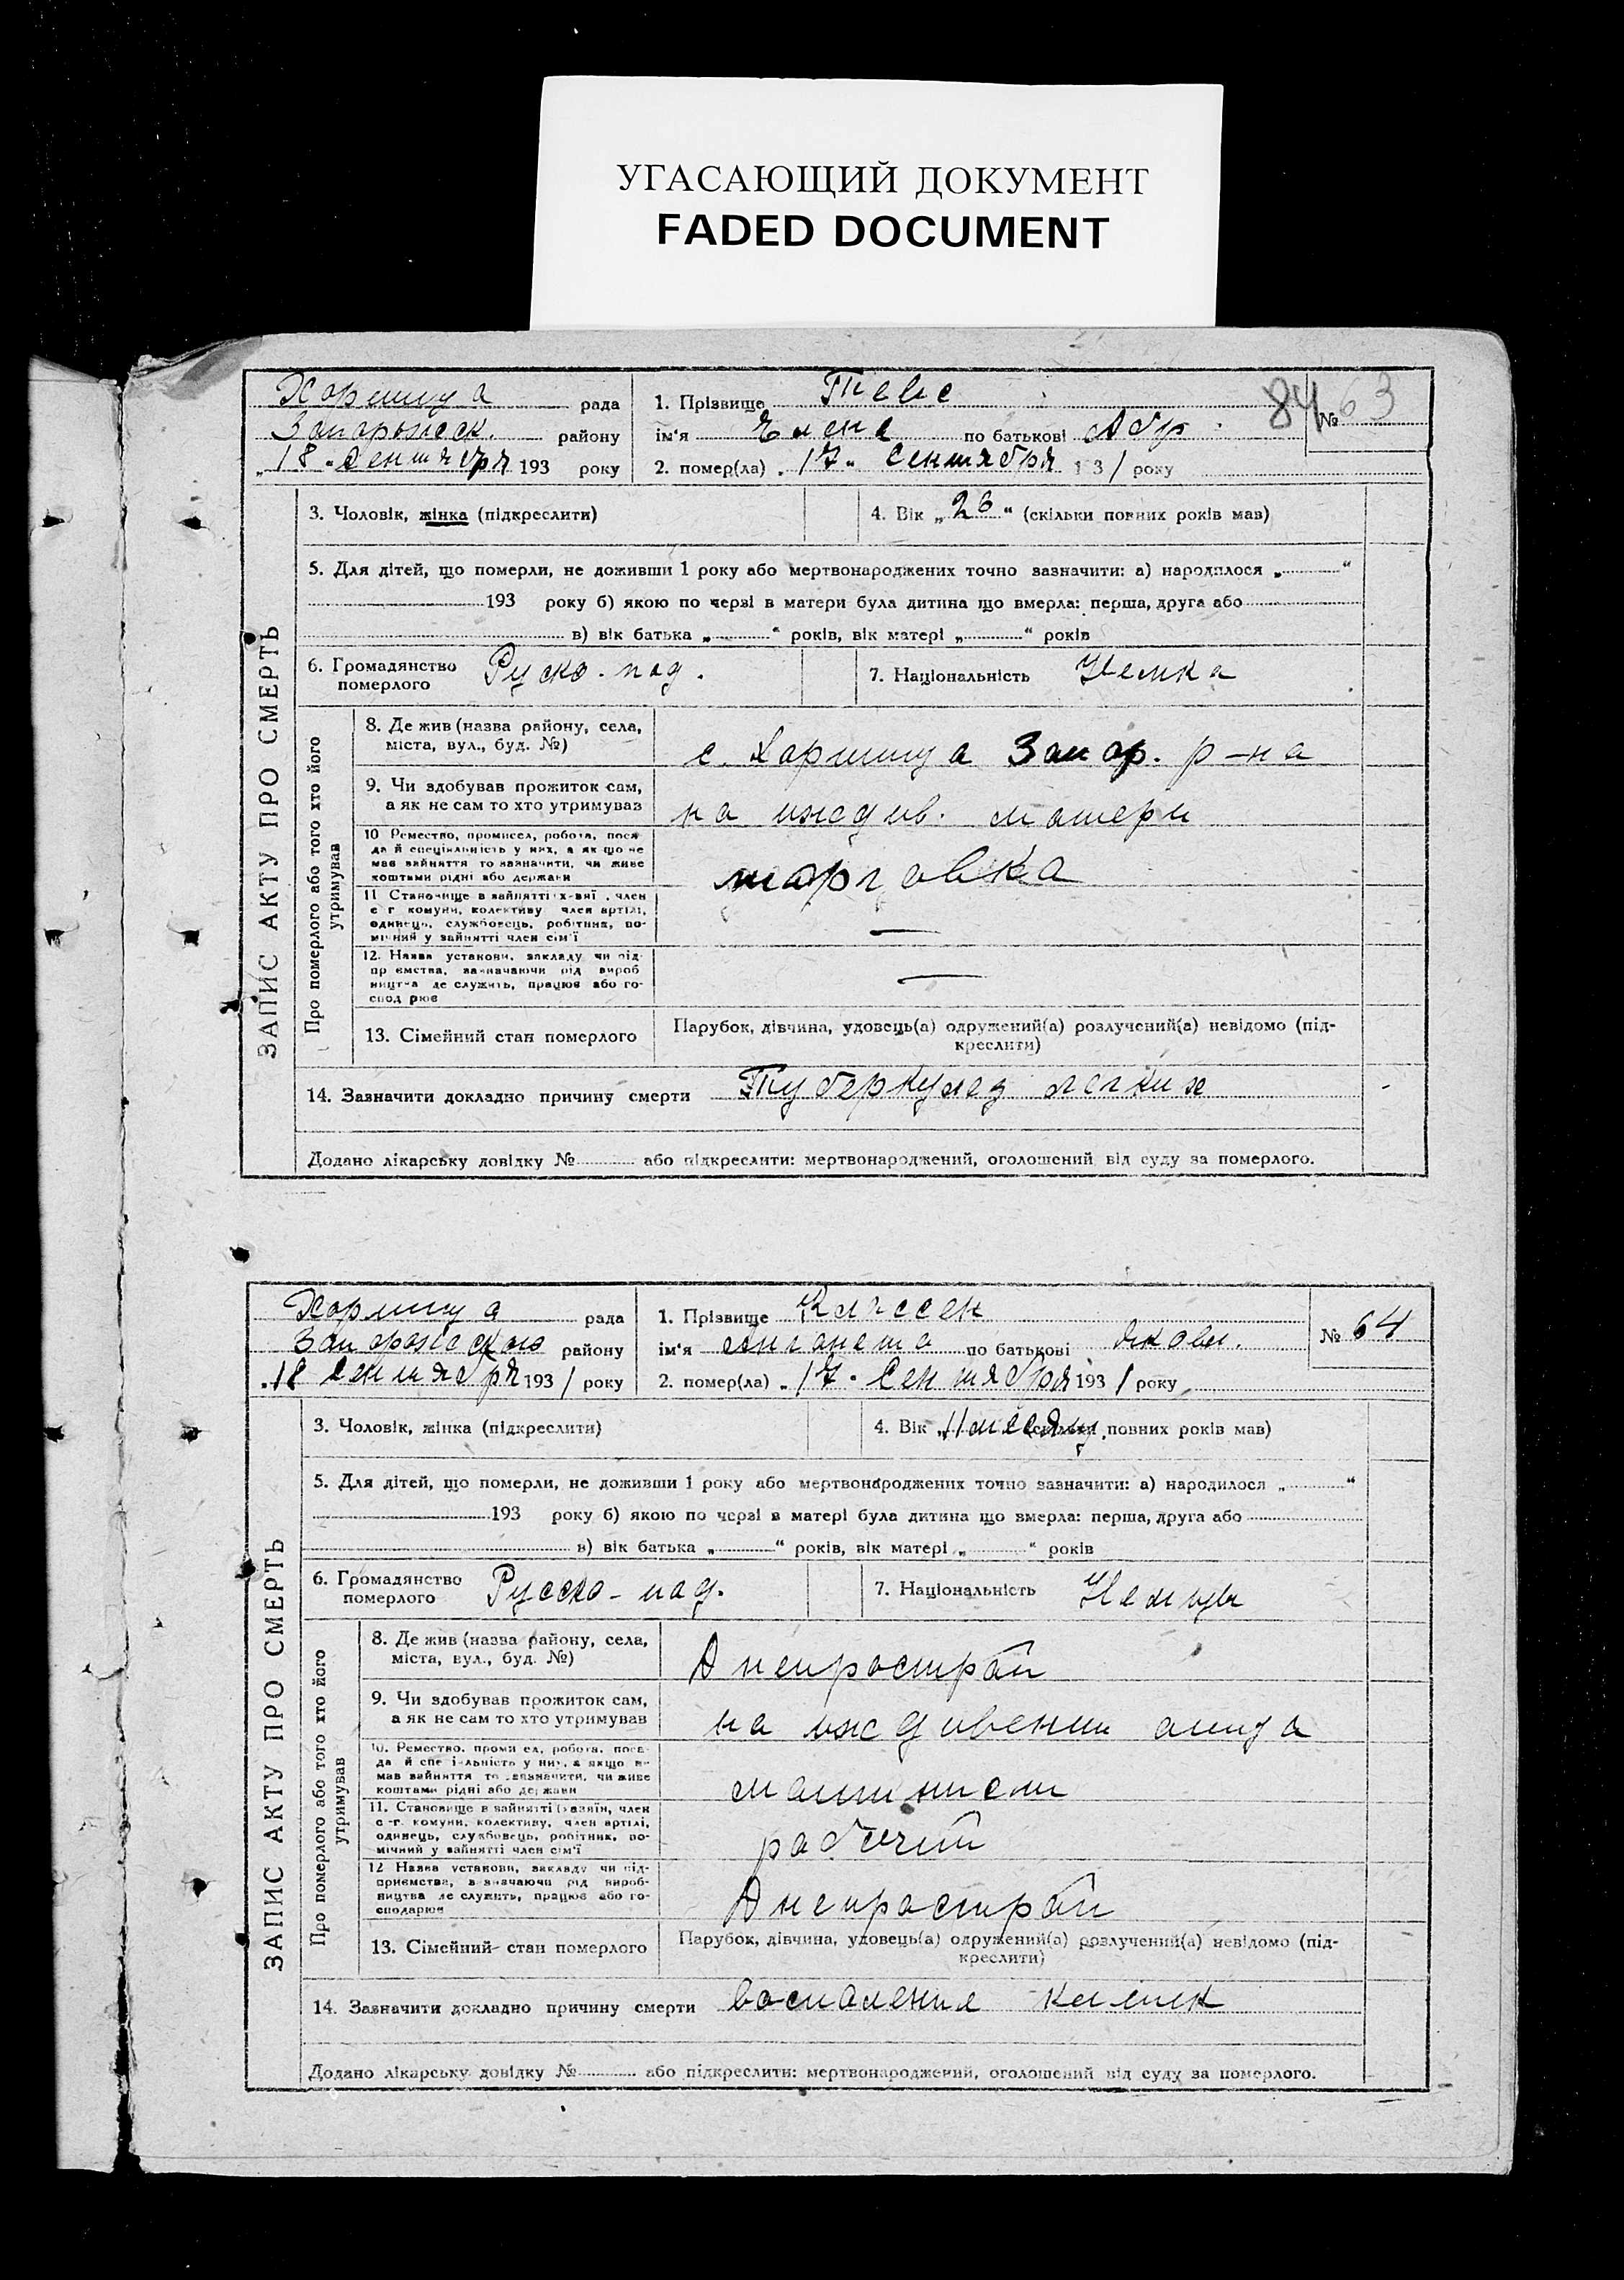 УГАСАЮЩИЙ ДОКУМЕНТ
FADED DOCUMENT
84
Хортица рада
Запорожск. району
„18 „ Сентября 193 року
1. Прізвище Тевс
ім'я Елена по батькові Абр.
2. помер(ла) „17„ Сентября 1931 року
№ 63
3. Чоловік, жінка (підкреслити)
4. Вік „26“ (скільки повних років мав)
5. Для дітей, що померли, не доживши 1 року або мертвонароджених точно зазначити: а) народилося „ “
193 року б) якою по черзі в матери була дитина що вмерла: перша, друга або
в) вік батька „ “ років, вік матері „ “ років
6. Громадянство померлого Руско-под.
7. Національність Немка
ЗАПИС АКТУ ПРО СМЕРТЬ
Про померлого або того хто його утримував
8. Де жив (назва району, села,
міста, вул., буд. №)
с. Хортица Запор. р-на
9. Чи здобував прожиток сам,
а як не сам то хто утримував
на иждив. матери
10 Ремество, промисел, робота, поса-
да й спеціяльність у них, а як що не
мав зайняття то зазначити, чи живе
коштами рідні або держави
торговка
11 Становище в зайнятті член
с г комуни, колективу член артілі,
одинець, службовець, робітник, по-
мічний у зайнятті член сім'ї
—
12. Назва установи, закладу чи під-
приємства, зазначаючи рід вироб
ництва де служить, працює або го-
сподарює
—
13. Сімейний стан померлого
Парубок, дівчина, удовець(а) одружений(а) розлучений(а) невідомо (під-
креслити)
14. Зазначити докладно причину смерти Туберкулез легких
Додано лікарську довідку № або підкреслити: мертвонароджений, оголошений від суду за померлого.
Хортица рада
Запорожского району
„18 Сентября 1931 року
1. Прізвище Классен
ім'я Анганета по батькові Яковл.
2. помер(ла) „17„ Сентября 1931 року
№ 64
3. Чоловік, жінка (підкреслити)
4. Вік „11 месяц. (скільки повних років мав)
5. Для дітей, що померли, не доживши 1 року або мертвонароджених точно зазначити: а) народилося „ “
193 року б) якою по черзі в матері була дитина що вмерла: перша, друга або
в) вік батька „ “ років, вік матері „ “ років
6. Громадянство померлого Русско-под.
7. Національність Немцы
ЗАПИС АКТУ ПРО СМЕРТЬ
Про померлого або того хто його утримував
8. Де жив (назва району, села,
міста, вул., буд. №)
Днепрострой
9. Чи здобував прожиток сам,
а як не сам то хто утримував
на иждивении отца
10. Ремество, промисел, робота, поса-
да й спеціяльність у них, а якщо не
мав зайняття то зазначити, чи живе
коштами рідні або держави
машинист
11. Становище в зайнятті (хазяїн, член
с-г. комуни, колективу, член артілі,
одинець, службовець, робітник, по-
мічний у зайнятті член сім'ї
рабочий
12 Назва установи, закладу чи під-
приємства, зазначаючи рід вироб-
ництва де служить, працює або го-
сподарює
Днепрострой
13. Сімейний стан померлого
Парубок, дівчина, удовець(а) одружений(а) розлучений(а) невідомо (під-
креслити)
14. Зазначити докладно причину смерти воспаление кишек
Додано лікарську довідку № або підкреслити: мертвонароджений, оголошений від суду за померлого.